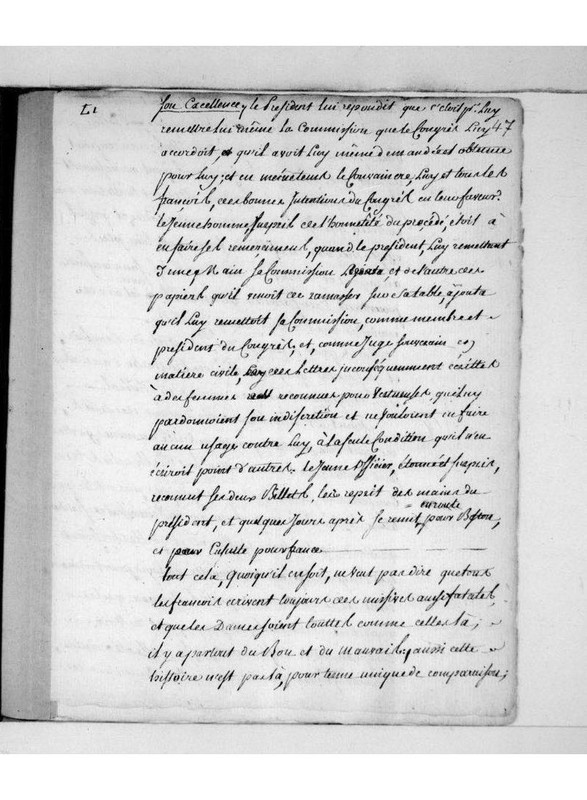 L1
Son Excellence, le President lui repondit que c'etoit pr. Luy
remettre lui même la Commission que le Congrès Luy 47
accordoit, et qu'il avoit Luy même demandée et obtenue
pour Luy; et en même tems le Convaincre, Luy et tous les
francois, des bonnes Intentions du Congrès en leur faveur.
le Jeune homme surpris de l'honnêteté du procédé, étoit à
en faire ses remerciments, quand le president, Luy remettant
d'une Main sa Commission, et de l'autre des
papiers qu'il venoit de ramasser sur sa table, ajouta
qu'il Luy remettoit sa Commission, comme membre et
president du Congrès; et, comme Juge souverain en
matiere civile, des Lettres inconséquemment écrittes
à des femmes reconnues pour vertueuses, qui Luy
pardonnoient son indiscretion et ne vouloient en faire
aucun usage contre Luy, à la seule Condition qu'il n'en
écriroit point d'autres. le Jeune Officier, étonné et surpris,
reconnut ses deux Billets, les reprit des mains du
président, et quelques Jours après se remit en route pour Boston,
et ensuite pour france
Tout cela, Quoiqu'il en soit, ne veut pas dire que tous
les francois écrivent toujours des missives aussi fatales,
et que les Dames soient touttes comme celles là;
il y a partout du Bon et du mauvais; aussi cette
histoire n'est pas là, pour terme unique de comparaison;